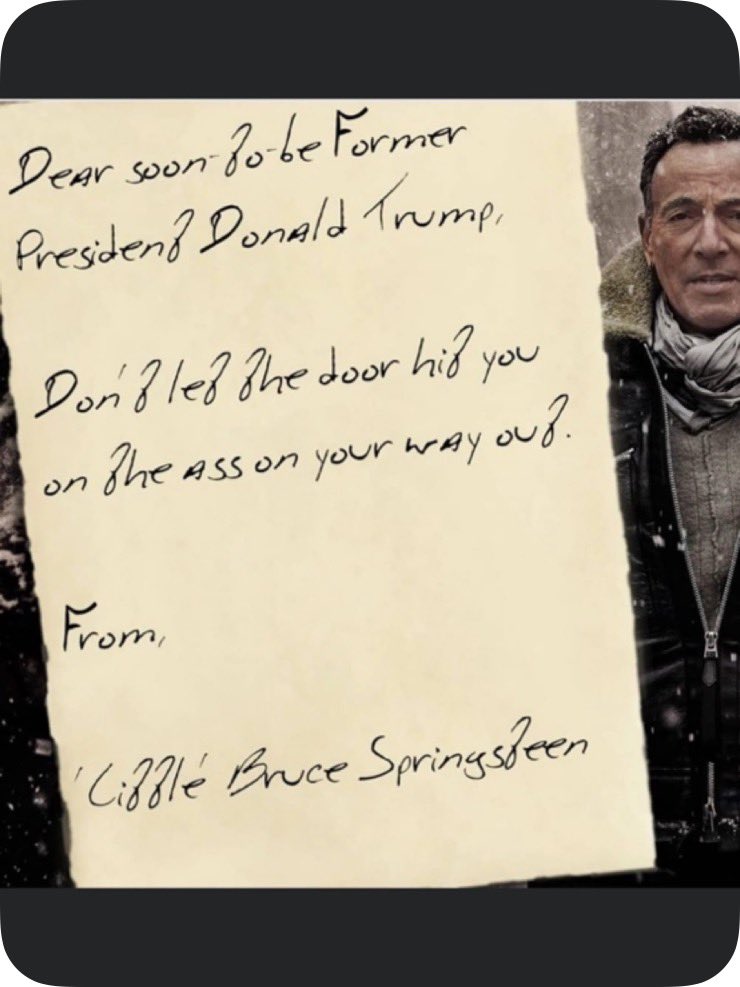 Dear soon-to-be Former
President Donald Trump,
Don't let the door hit you
on the ass on your way out.
From,
'Little' Bruce Springsteen